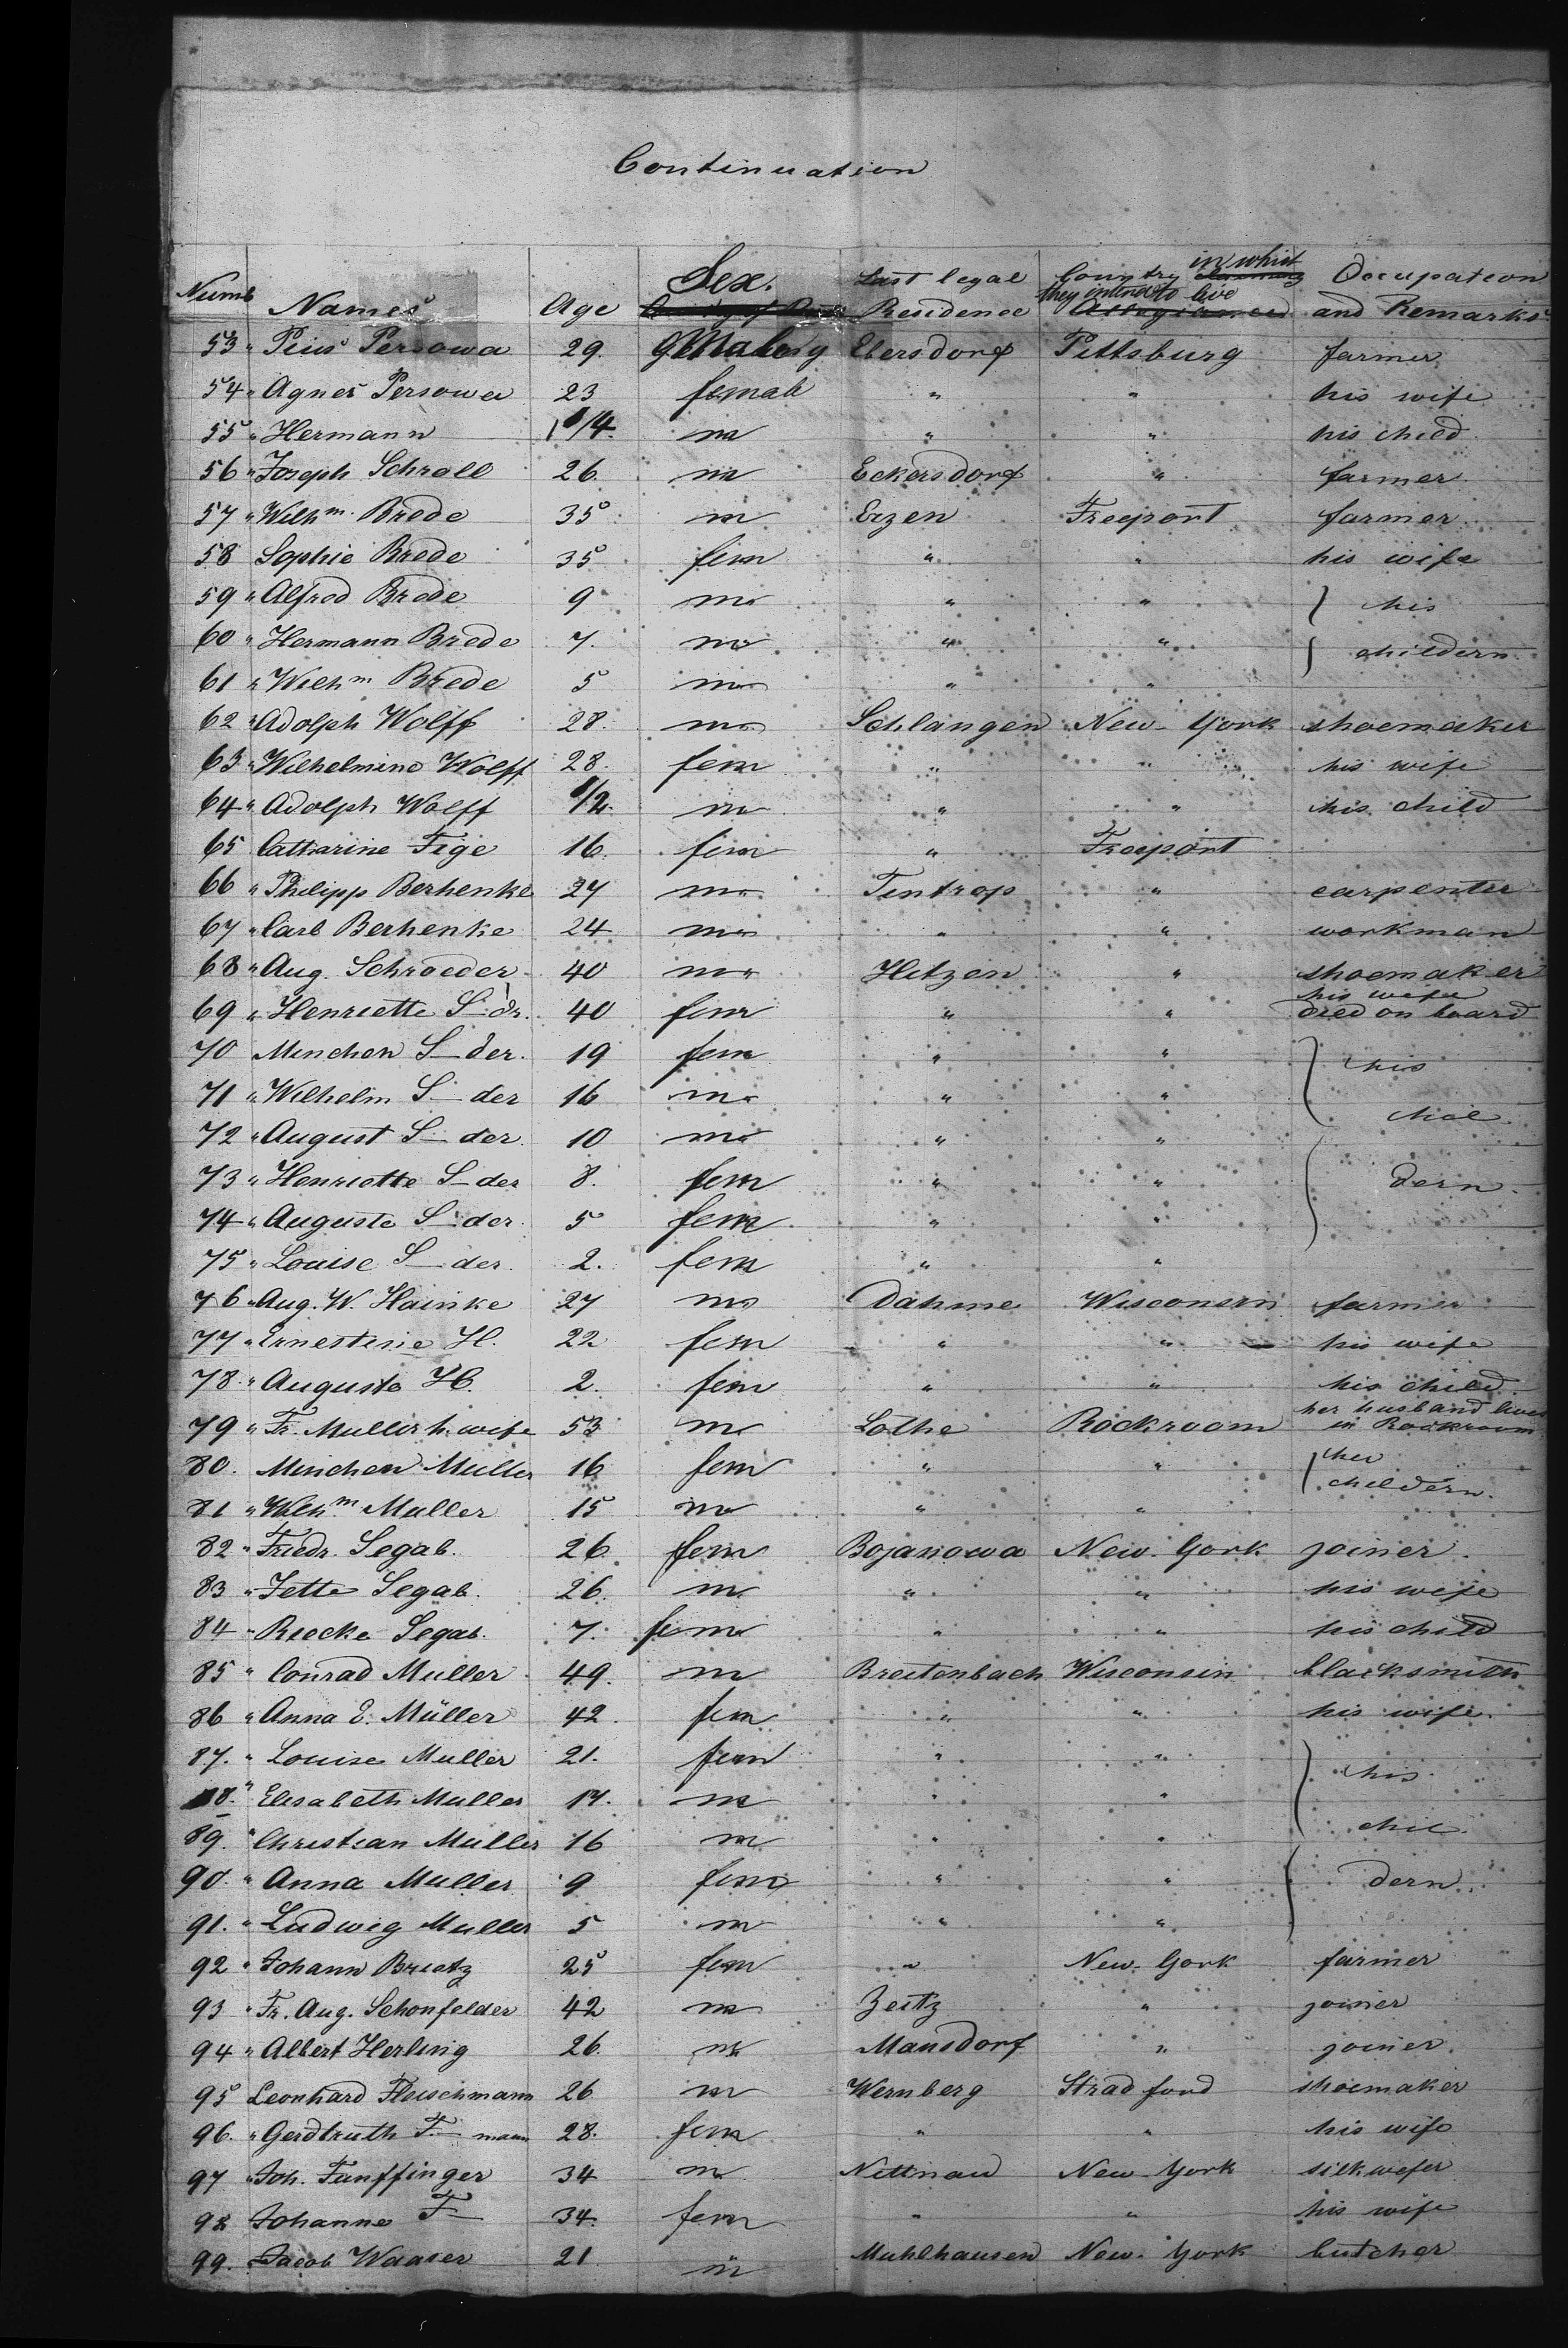 Continuation
Numb Names Age Sex. Last legal Residence Country in which they intend to live Occupation and Remarks
53 " Pius Persowa 29. Male Ebersdorf Pittsburg farmer
54 " Agnes Persowa 23 female " " his wife
55 " Hermann 1/4. m " " his child.
56 " Joseph Schroll 26. m Eckersdorf " farmer.
57 " Wilhm. Brede 35 m Erzen Freeport farmer.
58 Sophie Brede 35 fem " " his wife
59 " Alfred Brede 9 m " " } his
60 " Hermann Brede 7. m " " } childern.
61 " Wilhm Brede 5 m " "
62 " Adolph Wolff 28. m Schlangen New-York shoemaker
63 " Wilhelmine Wolff 28. fem " " his wife
64 " Adolph Wolff 1/2. m " " his child
65 Catharine Fige 16. fem " Freeport
66 " Philipp Berhenke 27 m Tintrop " carpenter
67 " Carl Berhenke 24 m " " workman
68 " Aug. Schroeder 40 m Hitzen " shoemaker
69 " Henriette S-dr. 40 fem " " his wife died on board
70 Minchen S-der. 19 fem " " } his
71 " Wilhelm S-der 16 m " "
72 " August S-der. 10 m " " chil
73 " Henriette S-der 8. fem " " } dern.
74 " Auguste S-der. 5 fem " "
75 " Louise S-der. 2. fem " "
76 " Aug. W. Hainke 27 m Dahme Wisconsin farmer
77 " Ernestine H. 22 fem " " his wife
78. " Auguste H. 2. fem " " his child.
79 " Fr. Muller h. wife 53 m Lothe Rockroom her husband lives in Rockroom
80. Minchen Muller 16 fem " " } her
81 " Wilhm Muller 15 m " " childern.
82 " Friedr. Segab. 26. fem Bojanowa New-York joiner.
83 " Jette Segab. 26. m " " his wife
84 " Riecke Segab. 7. fem " " his child
85 " Conrad Muller 49. m Breitenbach Wisconsin blacksmith
86 " Anna E. Müller 42. fem " " his wife.
87. " Louise Muller 21. fem " " } his
88. " Elisabeth Muller 17. m " "
89. " Christian Muller 16 m " " chil
90. " Anna Muller 9 fem " " } dern.
91. " Ludwig Muller 5 m " "
92 " Johann Brietz 25 fem " New-York farmer
93 " Fr. Aug. Schonfelder 42 m Zeitz " joiner
94 " Albert Herling 26. m Mansdorf " joiner.
95 Leonhard Fleischmann 26 m Wernberg Stradford shoemaker
96. " Gerdtruth F-mann 28. fem " " his wife
97 " Joh. Funffinger 34 m Nittnau New-York silkwefer
98 Johanne F- 34. fem " " his wife
99. Jacob Waaser 21 m Muhlhausen New-York butcher